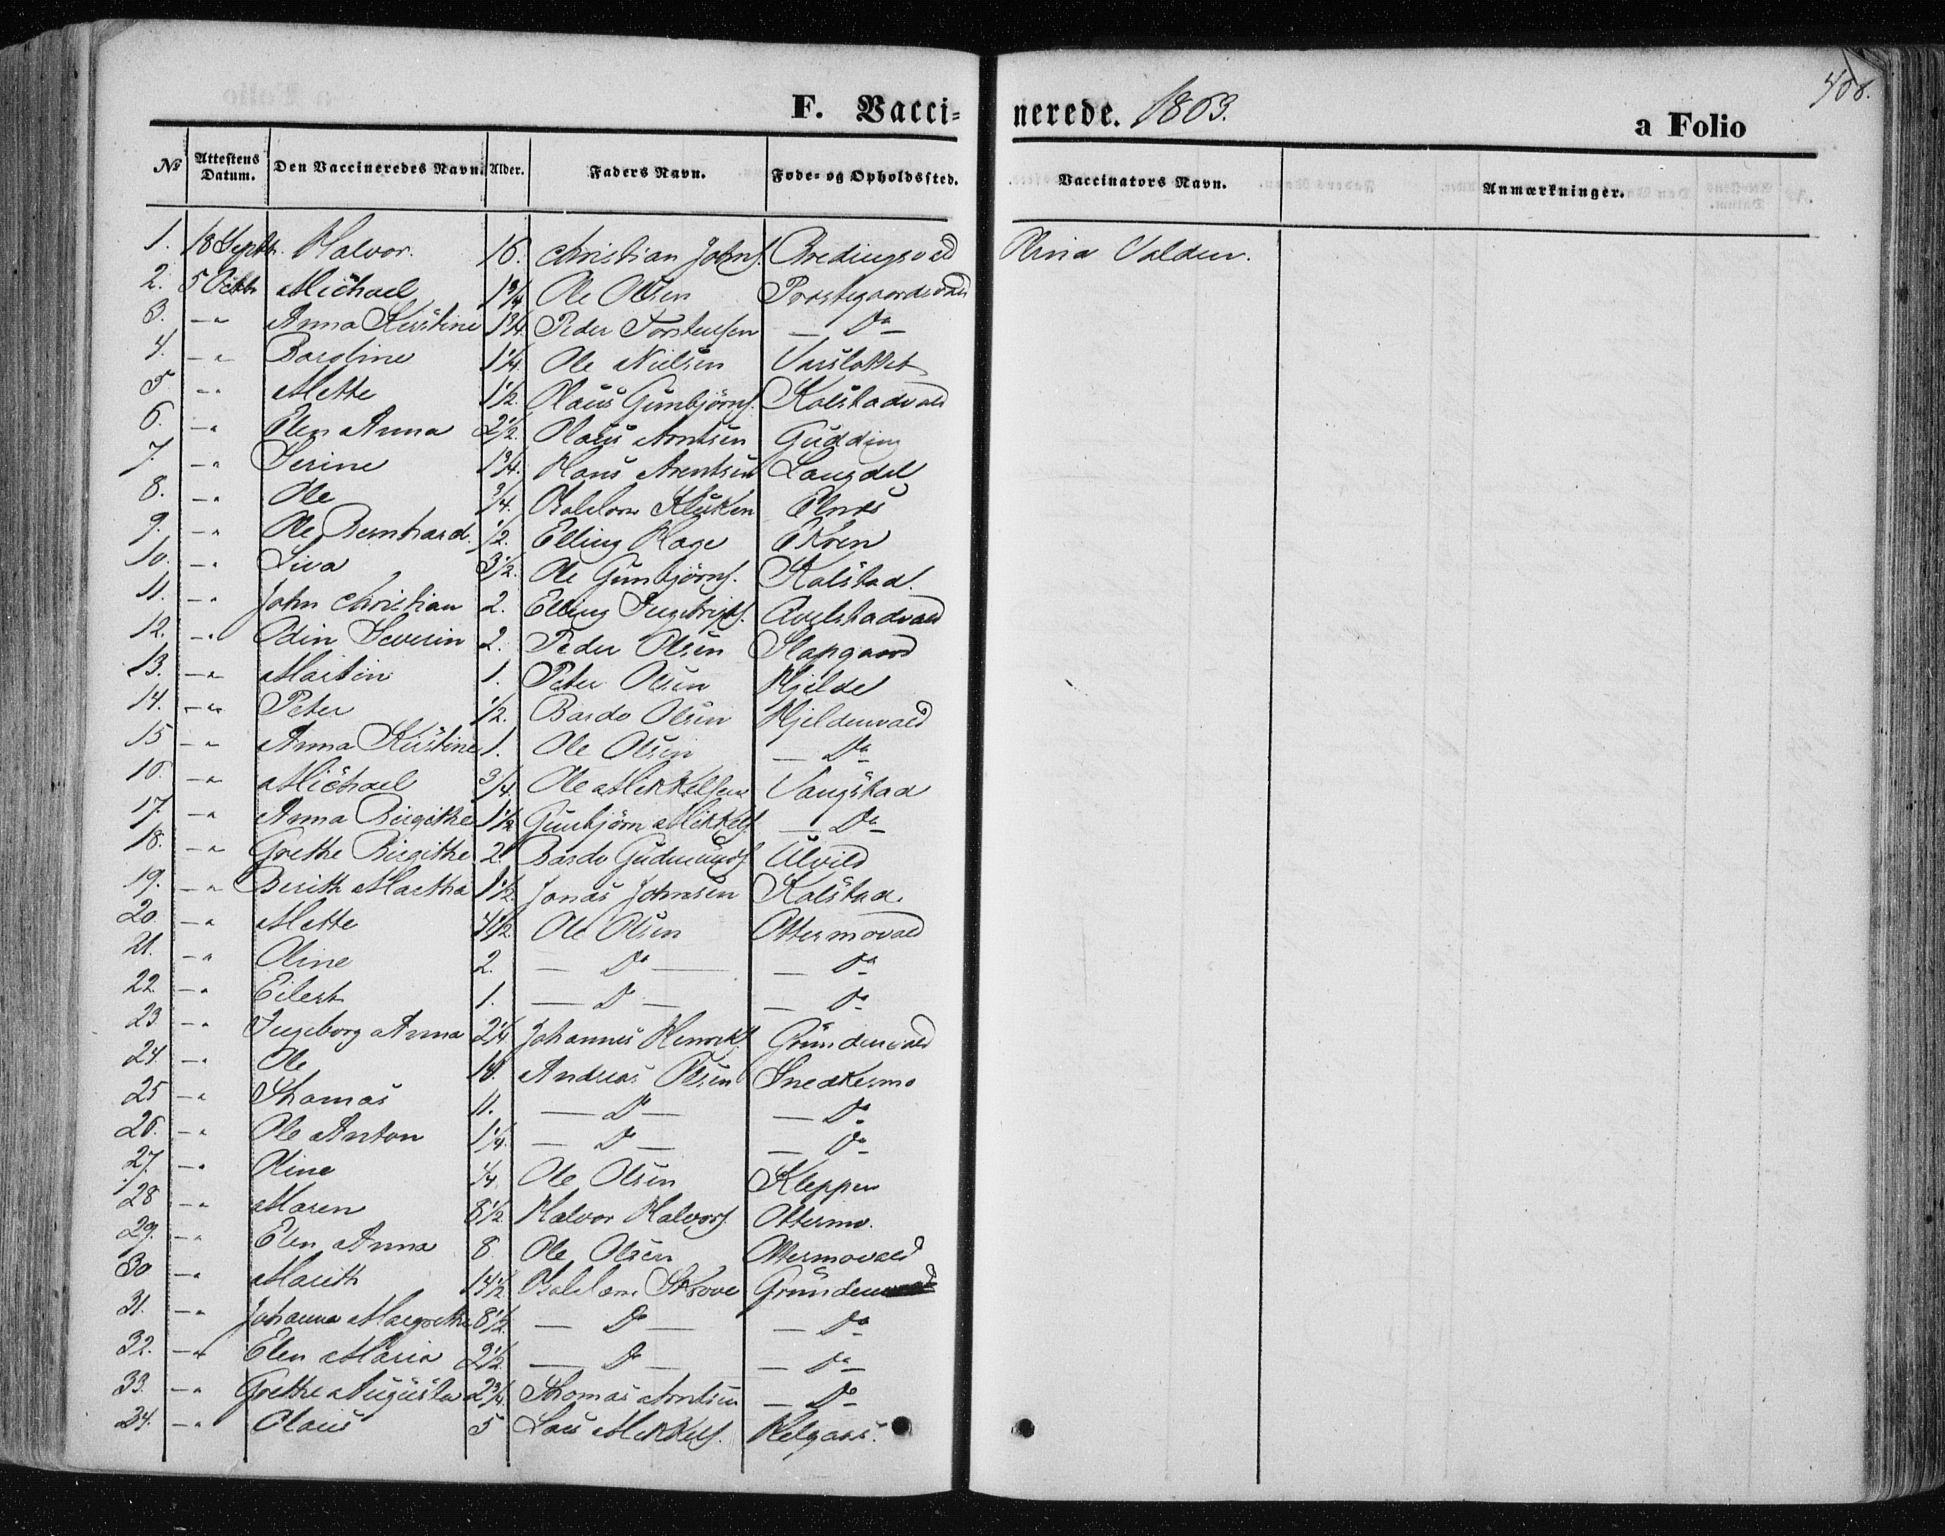 408.
F. Vaccinerede. 1863. a Folio
No Attestens Datum. Den Vaccineredes Navn. Alder. Faders Navn. Føde- og Opholdssted. Vaccinators Navn. Anmærkninger.
1. 18 Septbr. Halvor. 16. Christian Johns. Bredingsvald Olina Valden.
2. 5 Octbr Michael 1 3/4 Ole Olsen Præstegaardsvald
3. -"- Anna Kirstine 1 3/4 Peder Torstensen - Do -
4. -"- Bergline 1 1/4 Ole Nielsen
5 -"- Mette 1 1/2. Claus Gunbjörns. Kolstadvald
6. -"- Elen Anna 2 1/2. Claus Arntsen Gudding
7. -"- Serine 1 3/4. Hans Arentsen Langdal
8. -"- Ole 3/4. Elnæs
9. -"- Ole Bernhard. 1/2. Elling Hage Ekren
10. -"- Liva 3 1/2. Ole Gunbjörns. Kolstad.
11. -"- John Christian 2. Elling Avelstadvald
12. -"- Odin Severin 2. Peder Olsen Slapgaard
13. -"- Martin 1. Peter Olsen Hjelde
14. -"- Peter 1/2. Bardo Olsen Hjeldenvald
15 -"- Anna Kirstine 1. Ole Olsen - Do -
16. -"- Michael 3/4. Ole Mikkelsen Vangstad
17. -"- Anna Birgithe 1 1/2 Gunbjörn Mikkels. - Do -
18. -"- Grethe Birgithe 2. Bardo Gudmunds. Ulvild
19. -"- Berith Martha 1 1/2. Jonas Johnsen Kolstad.
20. -"- Mette 4 1/2. Ole Olsen Ottermovald
21. -"- Oline 2. - Do - - Do -
22. -"- Eilert 1. - Do - - Do -
23. -"- Ingeborg Anna 2 1/4. Johannes Henriks. Gründenvald
24 -"- Ole 14. Andreas Olsen Snedkermo
25 -"- Thomas 11. - Do - - Do -
26. -"- Ole Anton 1 1/4. - Do - - Do -
27. -"- Oline 1/4. Ole Olsen Kleppen
28 -"- Maren 8 1/2. Halvor Halvors. Ottermo.
29. -"- Elen Anna 8. Ole Olsen Ottermovald
30 -"- Marith 14 1/2 Skrove Gründen
31. -"- Johanna Margrethe 8 1/2. - Do - - Do -
32. -"- Elen Maria 2 1/2. - Do - - Do -
33. -"- Grethe Augusta 2 3/4. Thomas Arntsen - Do -
34. -"- Claus 5 Lars Mikkels. Helgaas.